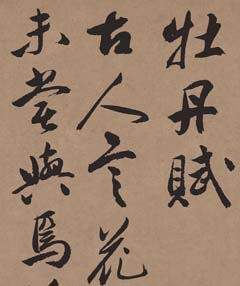 牡丹賦
古人言花
未嘗與焉